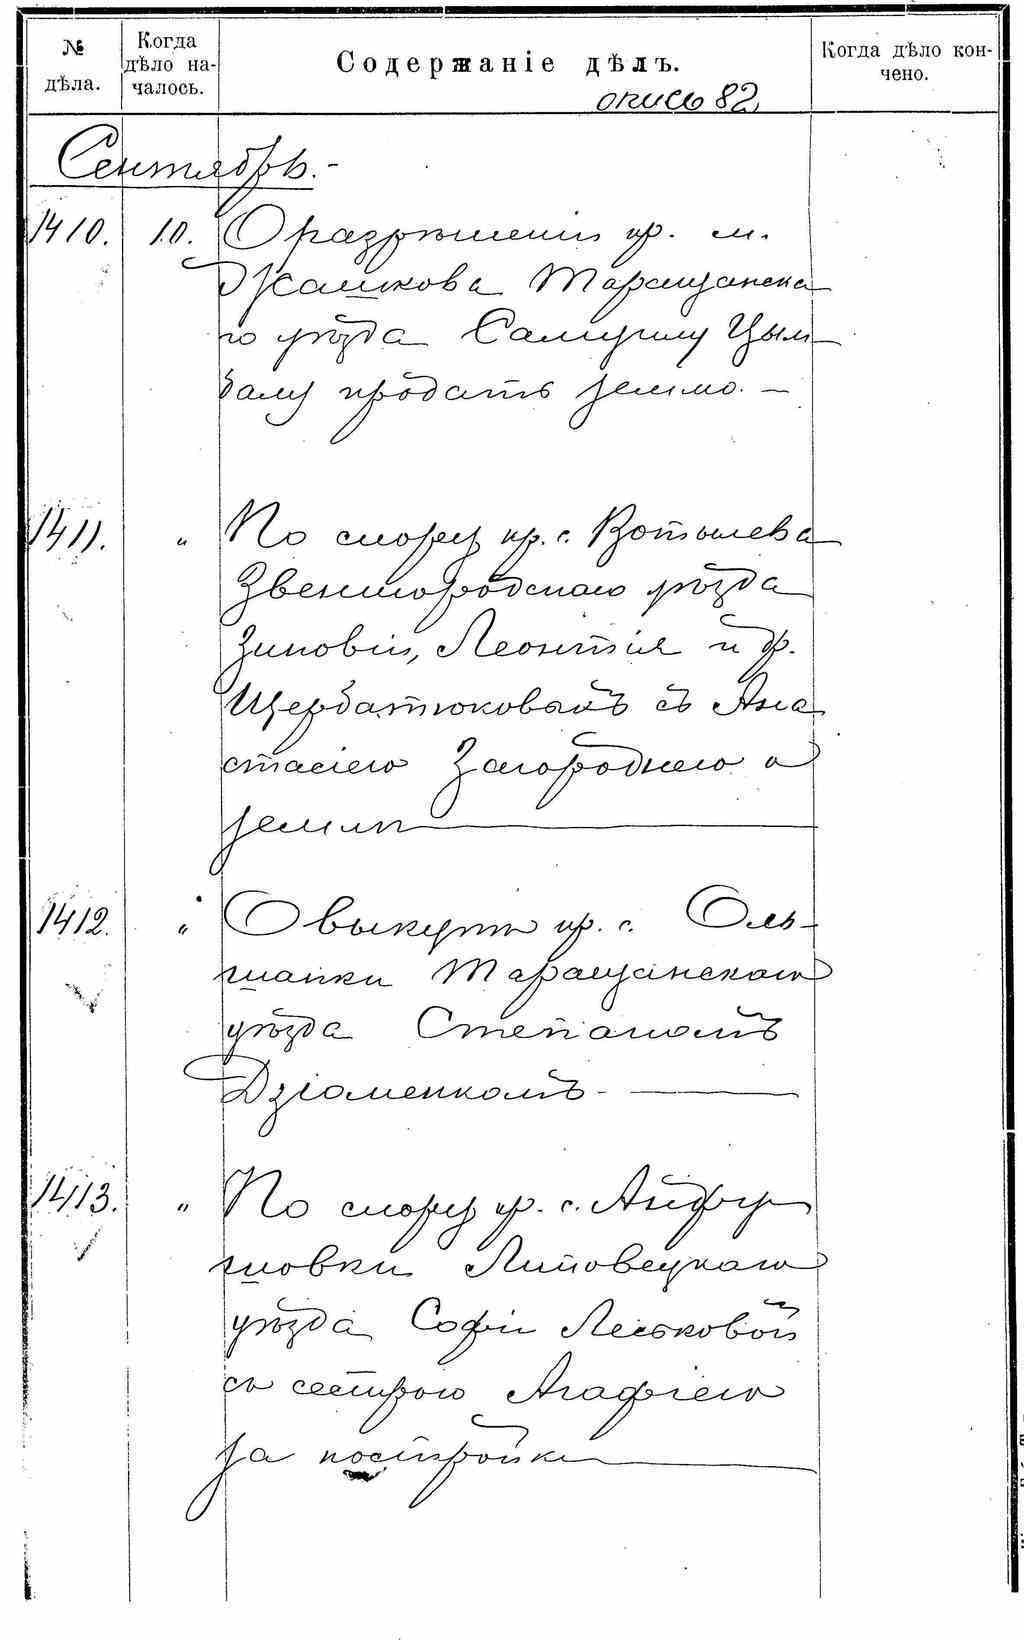 № дѣла.
Когда дѣло началось.
Содержаніе дѣлъ.
Когда дѣло кончено.
опись 82
Сентябрь.-
1410. 10. О разрѣшеніи кр. м.
Жашкова Таращанска
го уѣзда Самуилу Цым-
балу продать землю. —
1411. " По спору кр. с. Вотылева
Звенигородскаго уѣзда
Зиновіи, Леонтія и др.
Щербатюковыхъ съ Ана
стасіею Загороднею о
землѣ
1412. " О выкупѣ кр. с. Оль-
шанки Таращанскаго
уѣзда Степаномъ
Дзюменкомъ. —
1413. " По спору кр. с.
шовки Липовецкаго
уѣзда Софіи Леськовой
съ сестрою Агафіею
за постройки